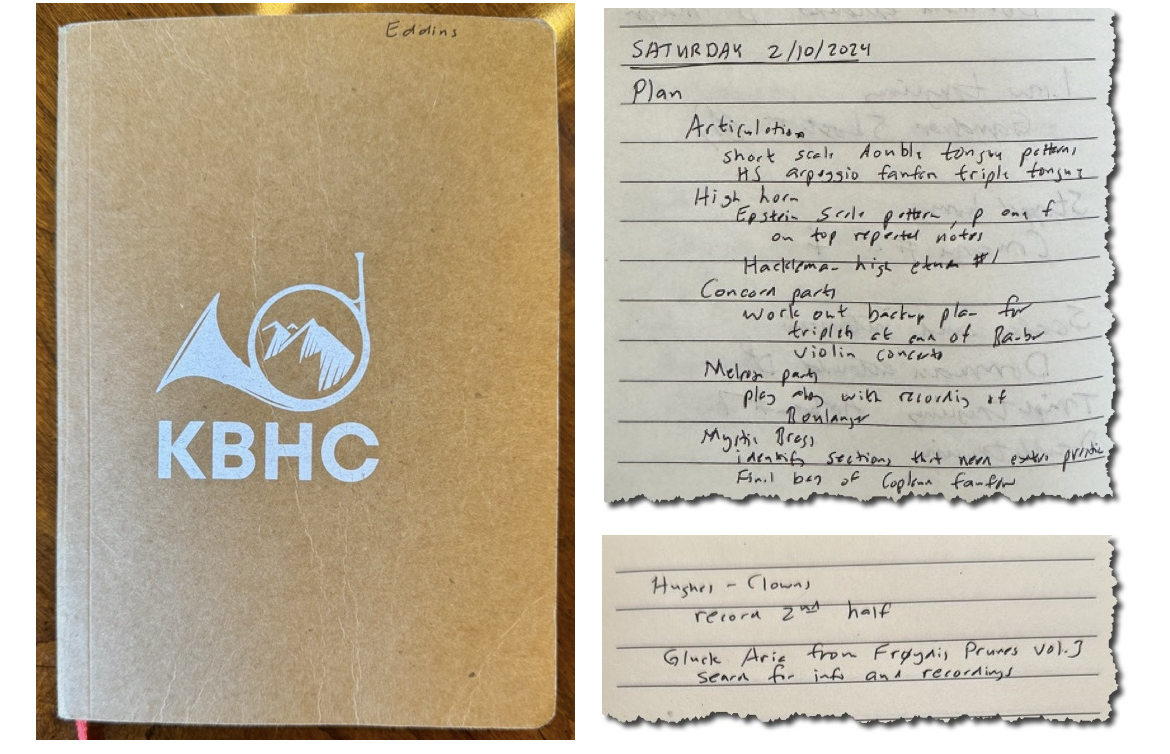 Eddins
KBHC
SATURDAY 2/10/2024
Plan
Articulation
short scale double tongue patterns
HS arpeggio fanfare triple tongue
High horn
Epstein scale pattern, p and f
on top repeated notes
Hackleman high etude #1
Concord parts
work out backup plan for
triplets at end of Barber
violin concerto
Melrose parts
play along with recording of
Boulanger
Mystic Brass
identify sections that need extra practice
Final bars of Copland fanfare
Hughes - Clowns
record 2nd half
Gluck Aria from Frøydis Prunes vol.3
search for info and recordings